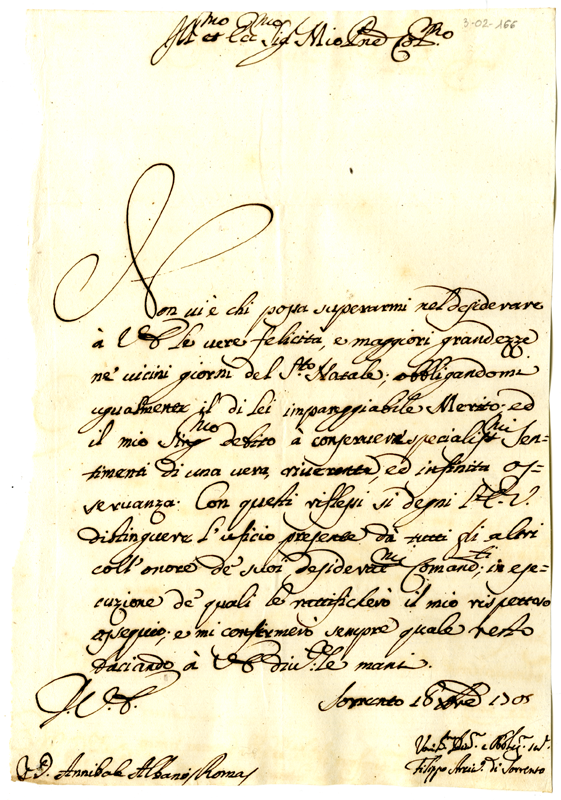 3-02-166
Ill.mo et Ecc.mo Sig.r Mio P.ne Col.mo
Non vi è chi possa superarmi nel desiderare
à V.E. le vere felicità, e maggiori grandezze
ne' vicini giorni del S.to Natale; obbligandomi
ugualmente il di lei impareggiabile Merito, ed
il mio debito à conservare specialis.mi Sen-
timenti di una vera, riverente, ed infinita os-
servanza. Con questi riflessi si degni l'E.V.
distinguere l'uficio presente dà tutti gli altri
coll'onore de' suoi Comandi; in ese-
cuzione de' quali le ratificherò il mio rispettoso
ossequio; e mi confermerò sempre quale resto
baciando à V.E. le mani.
Sorrento
V.E.
Annibale Albani Roma
Filippo Arciv.o di Sorrento